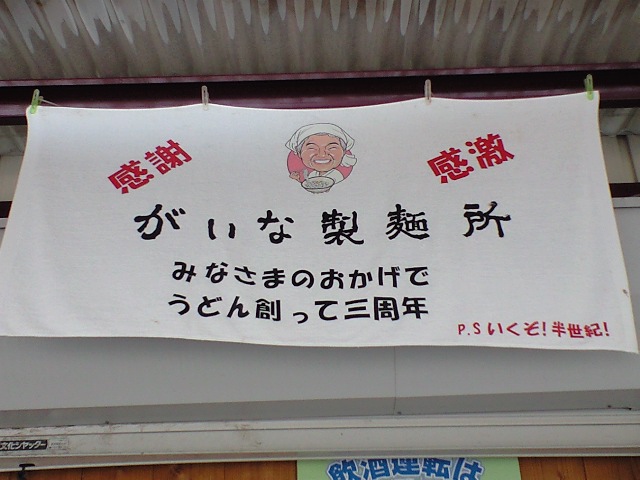 感謝
感激
がいな製麺所
みなさまのおかげで
うどん創って三周年
P.Sいくぞ!半世紀!
文化シヤッター
飲酒運転は